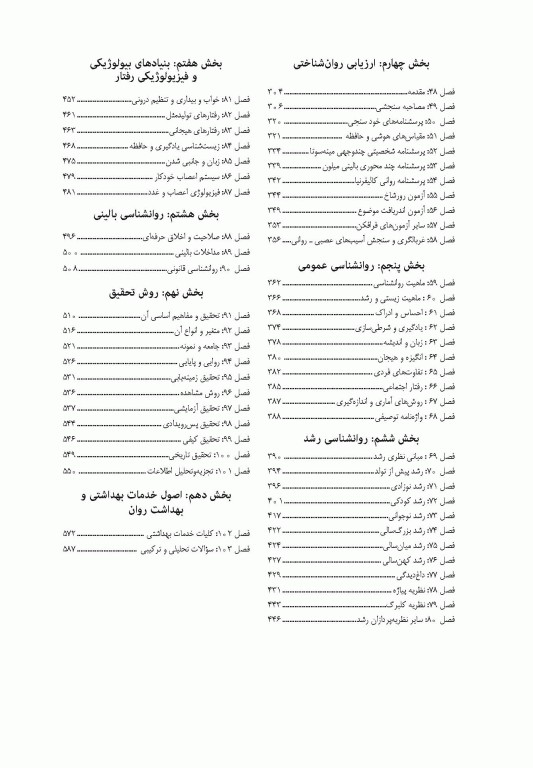 بخش چهارم: ارزیابی روان‌شناختی
فصل ۴۸: مقدمه ... ۳۰۴
فصل ۴۹: مصاحبه سنجشی ... ۳۰۶
فصل ۵۰: پرسشنامه‌های خود سنجی ... ۳۲۰
فصل ۵۱: مقیاس‌های هوشی و حافظه ... ۳۲۱
فصل ۵۲: پرسشنامه شخصیتی چندوجهی مینه‌سوتا ... ۳۳۴
فصل ۵۳: پرسشنامه چند محوری بالینی میلون ... ۳۳۹
فصل ۵۴: پرسشنامه روانی کالیفرنیا ... ۳۴۲
فصل ۵۵: آزمون رورشاخ ... ۳۴۴
فصل ۵۶: آزمون اندریافت موضوع ... ۳۴۹
فصل ۵۷: سایر آزمون‌های فرافکن ... ۳۵۳
فصل ۵۸: غربالگری و سنجش آسیب‌های عصبی ـ روانی ... ۳۵۶
بخش پنجم: روانشناسی عمومی
فصل ۵۹: ماهیت روانشناسی ... ۳۶۲
فصل ۶۰: ماهیت زیستی و رشد ... ۳۶۶
فصل ۶۱: احساس و ادراک ... ۳۶۸
فصل ۶۲: یادگیری و شرطی‌سازی ... ۳۷۴
فصل ۶۳: زبان و اندیشه ... ۳۷۸
فصل ۶۴: انگیزه و هیجان ... ۳۸۰
فصل ۶۵: تفاوت‌های فردی ... ۳۸۲
فصل ۶۶: رفتار اجتماعی ... ۳۸۵
فصل ۶۷: روش‌های آماری و اندازه‌گیری ... ۳۸۷
فصل ۶۸: واژه‌نامه توصیفی ... ۳۸۸
بخش ششم: روانشناسی رشد
فصل ۶۹: مبانی نظری رشد ... ۳۹۰
فصل ۷۰: رشد پیش از تولد ... ۳۹۴
فصل ۷۱: رشد نوزادی ... ۳۹۶
فصل ۷۲: رشد کودکی ... ۴۰۱
فصل ۷۳: رشد نوجوانی ... ۴۱۷
فصل ۷۴: رشد بزرگ‌سالی ... ۴۲۲
فصل ۷۵: رشد میان‌سالی ... ۴۲۴
فصل ۷۶: رشد کهن‌سالی ... ۴۲۷
فصل ۷۷: داغ‌دیدگی ... ۴۲۹
فصل ۷۸: نظریه پیاژه ... ۴۳۱
فصل ۷۹: نظریه کلبرگ ... ۴۴۳
فصل ۸۰: سایر نظریه‌پردازان رشد ... ۴۴۶
بخش هفتم: بنیادهای بیولوژیکی
و فیزیولوژیکی رفتار
فصل ۸۱: خواب و بیداری و تنظیم درونی ... ۴۵۲
فصل ۸۲: رفتارهای تولیدمثل ... ۴۶۱
فصل ۸۳: رفتارهای هیجانی ... ۴۶۳
فصل ۸۴: زیست‌شناسی یادگیری و حافظه ... ۴۶۸
فصل ۸۵: زبان و جانبی شدن ... ۴۷۵
فصل ۸۶: سیستم اعصاب خودکار ... ۴۷۹
فصل ۸۷: فیزیولوژی اعصاب و غدد ... ۴۸۱
بخش هشتم: روانشناسی بالینی
فصل ۸۸: صلاحیت و اخلاق حرفه‌ای ... ۴۹۶
فصل ۸۹: مداخلات بالینی ... ۵۰۰
فصل ۹۰: روانشناسی قانونی ... ۵۰۸
بخش نهم: روش تحقیق
فصل ۹۱: تحقیق و مفاهیم اساسی آن ... ۵۱۰
فصل ۹۲: متغیر و انواع آن ... ۵۱۶
فصل ۹۳: جامعه و نمونه ... ۵۲۱
فصل ۹۴: روایی و پایایی ... ۵۲۶
فصل ۹۵: تحقیق زمینه‌یابی ... ۵۳۱
فصل ۹۶: روش مشاهده ... ۵۳۶
فصل ۹۷: تحقیق آزمایشی ... ۵۳۷
فصل ۹۸: تحقیق پس‌رویدادی ... ۵۴۴
فصل ۹۹: تحقیق کیفی ... ۵۴۶
فصل ۱۰۰: تحقیق تاریخی ... ۵۴۹
فصل ۱۰۱: تجزیه‌وتحلیل اطلاعات ... ۵۵۰
بخش دهم: اصول خدمات بهداشتی و
بهداشت روان
فصل ۱۰۲: کلیات خدمات بهداشتی ... ۵۷۲
فصل ۱۰۳: سؤالات تحلیلی و ترکیبی ... ۵۸۷